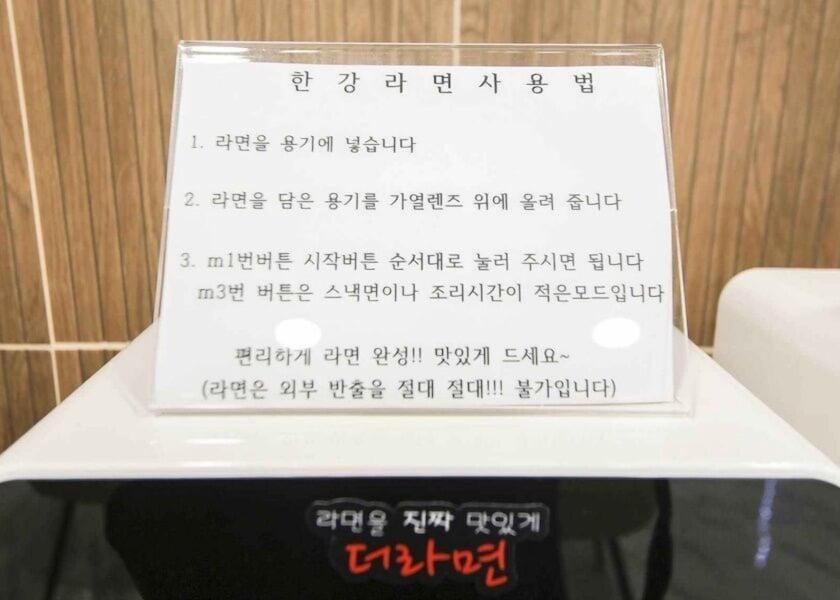 한강라면사용법
1. 라면을 용기에 넣습니다
2. 라면을 담은 용기를 가열렌즈 위에 올려 줍니다
3. m1번버튼 시작버튼 순서대로 눌러 주시면 됩니다
m3번 버튼은 스낵면이나 조리시간이 적은모드입니다
편리하게 라면 완성!! 맛있게 드세요~
(라면은 외부 반출을 절대 절대!!! 불가입니다)
라면을 진짜 맛있게
더라면